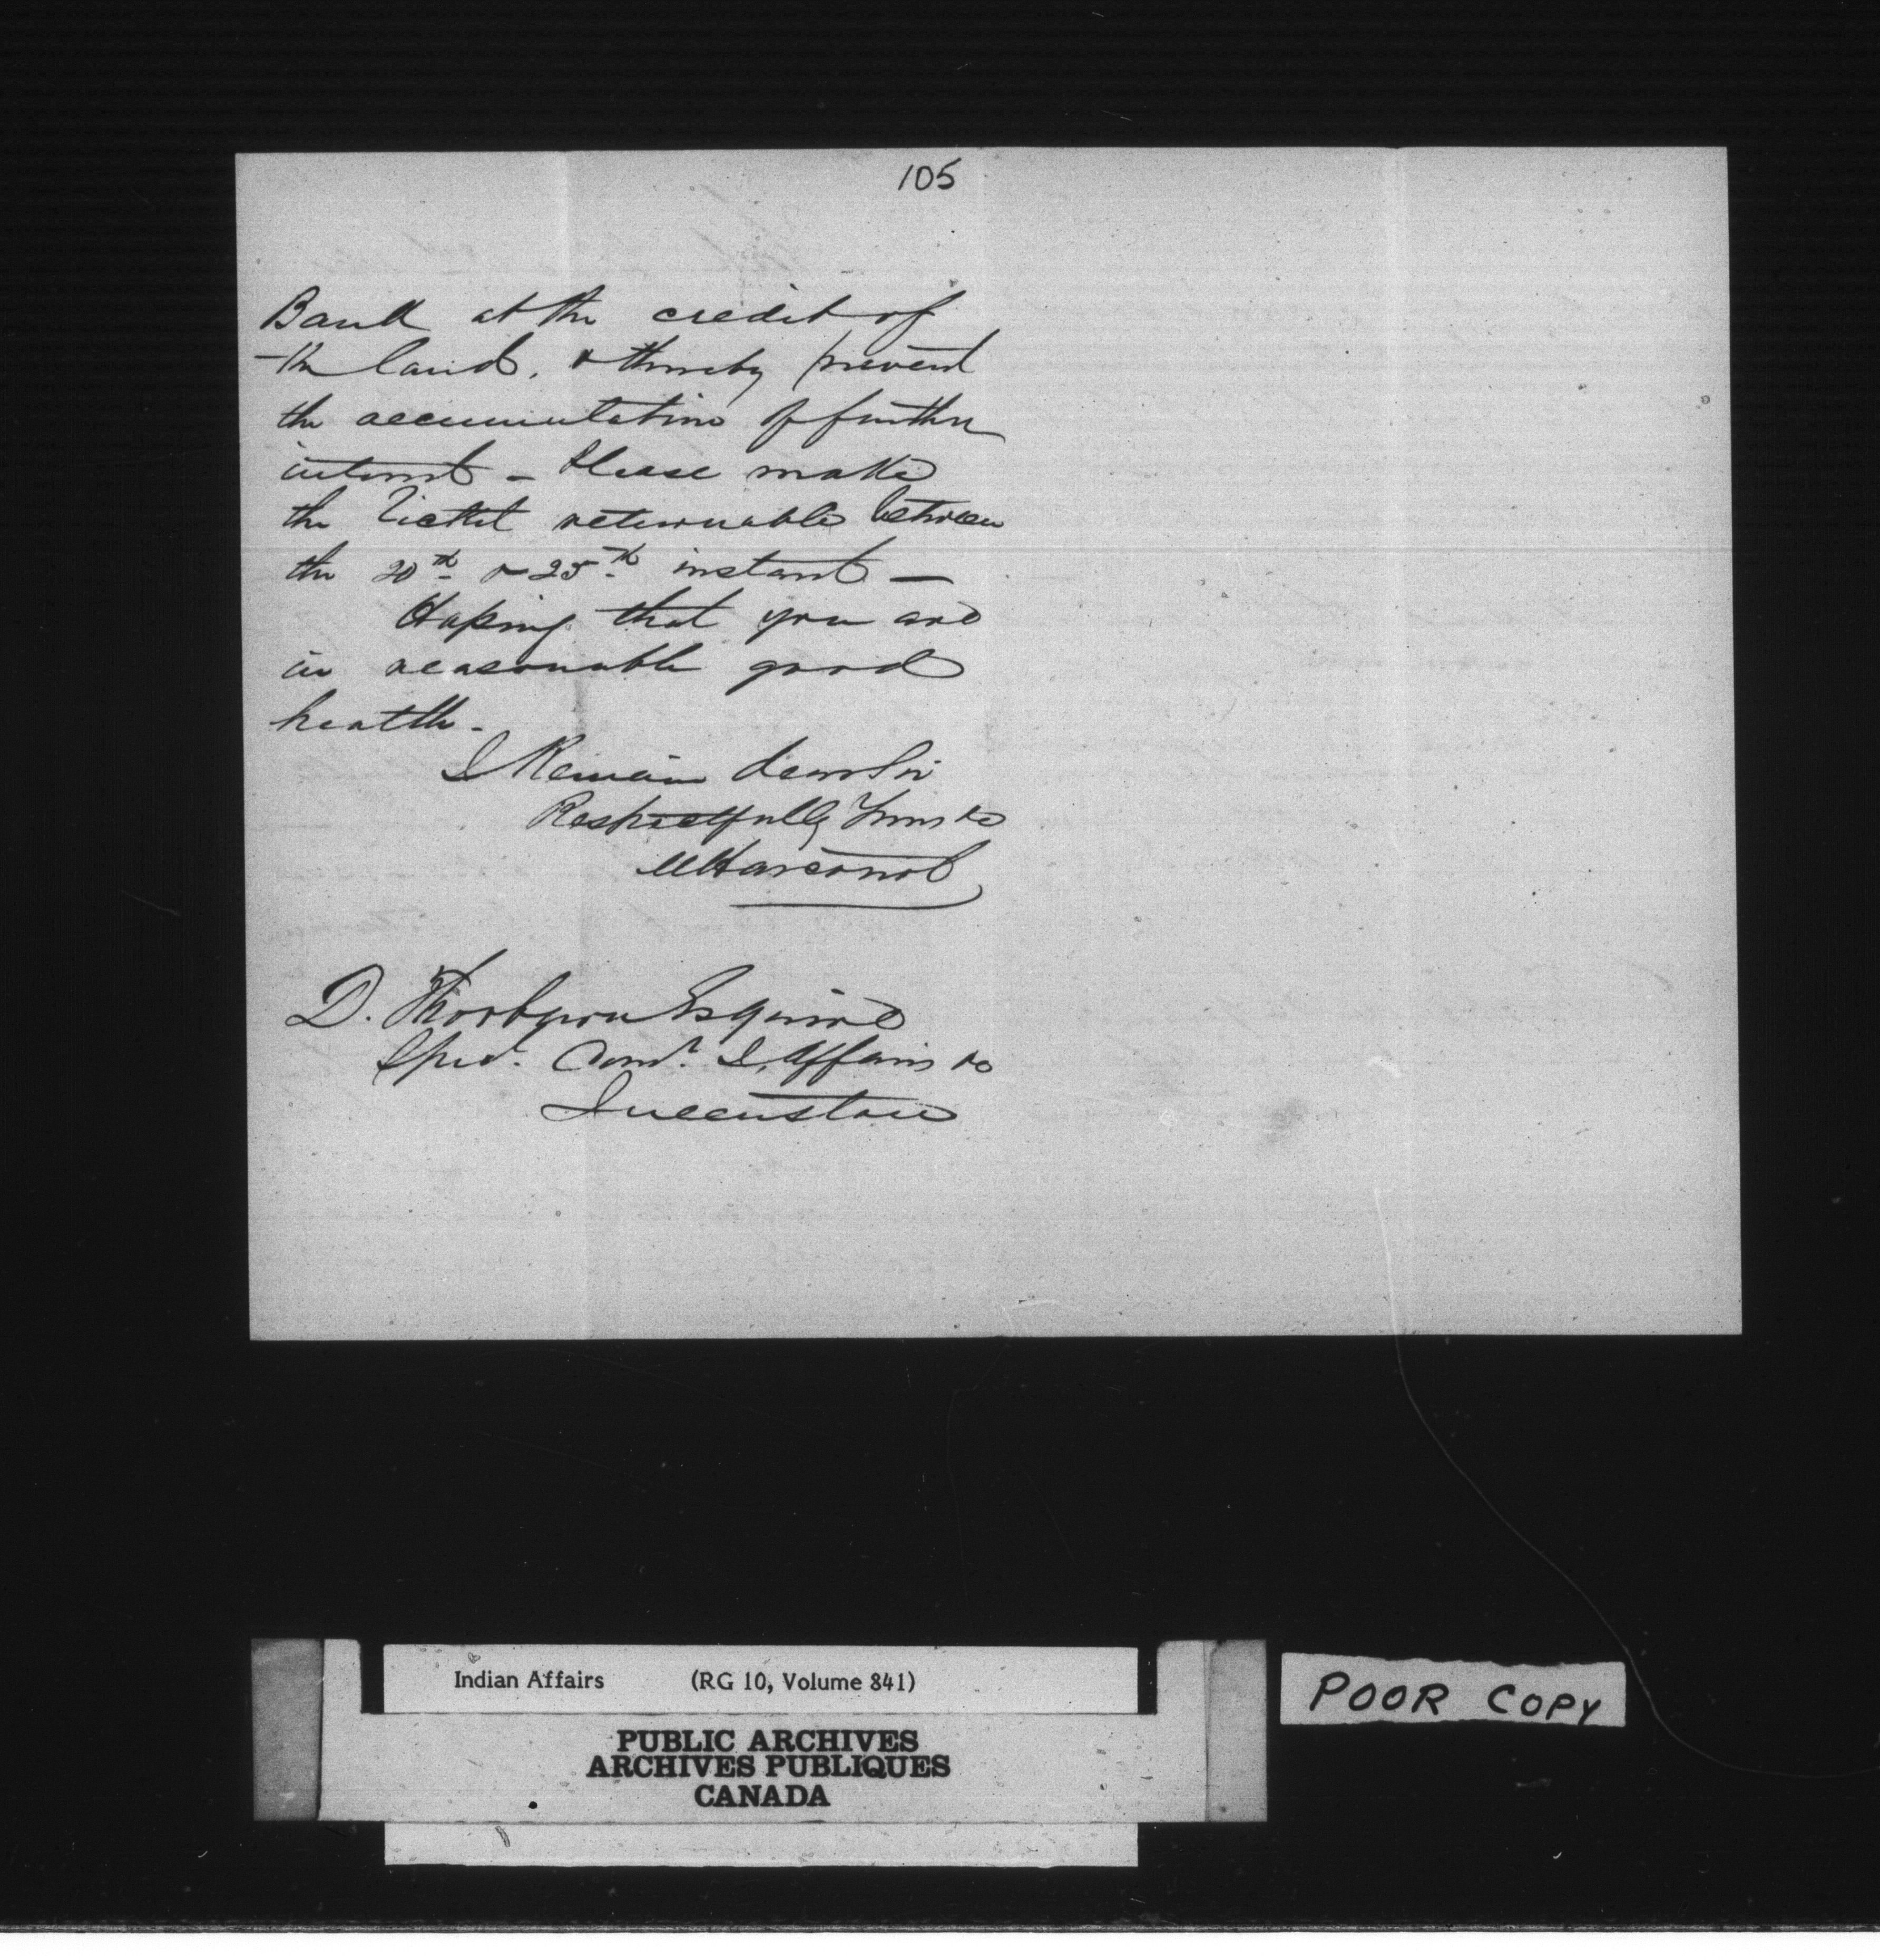 105
Bank at the credit of
the land, & thereby prevent
the accumulation of further
interest - Please make
the Ticket returnable between
the 20th & 25th instant -
Hoping that you are
in reasonable good
health -
I Remain dear Sir
Respectfully Yours &c
Harcourt
D. Thorburn Esquire
Specl. Comr. I. Affairs &c
Queenston
Indian Affairs (RG 10, Volume 841)
PUBLIC ARCHIVES
ARCHIVES PUBLIQUES
CANADA
POOR COPY